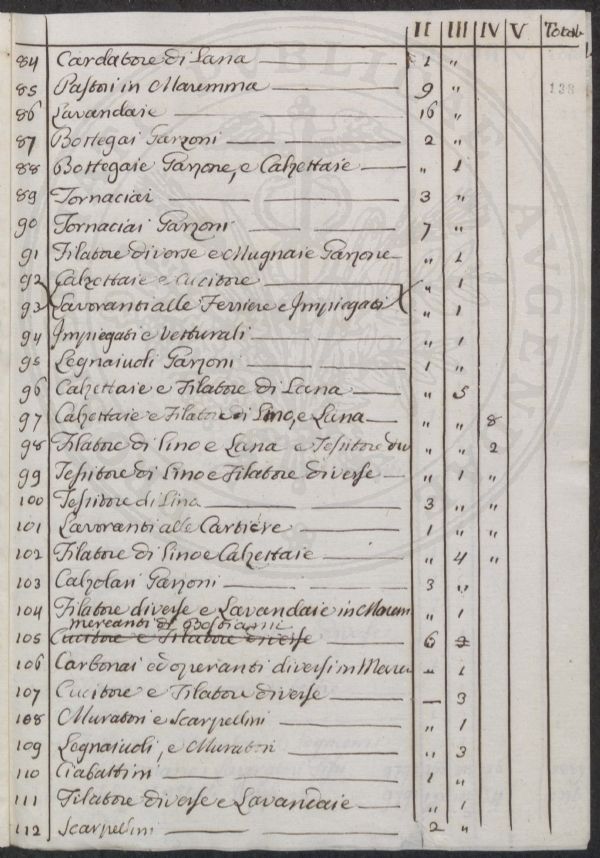 II III IV V Total
84 Cardatore di Lana 1 "
85 Pastori in Maremma 9 " 138
86 Lavandaie 16 "
87 Bottegai Garzoni 2 "
88 Bottegaie Garzone, e Calzettaie " 1
89 Fornaciai 3 "
90 Fornaciai Garzoni 7 "
91 Filatore diverse e Mugnaie Garzone " 1
92 Calzettaie e Cucitore " 1
93 Lavoranti alle Ferriere e Impiegati " 1
94 Impiegati e Vetturali " 1
95 Legnaiuoli Garzoni 1 "
96 Calzettaie e Filatore di Lana " 5
97 Calzettaie e Filatore di Lino, e Lana " " 8
98 Filatore di Lino e Lana e Tessitore " " 2
99 Tessitore di Lino e Filatore diverse " 1 "
100 Tessitore di Lina 3 " "
101 Lavoranti alle Cartiere 1 " "
102 Filatore di Lino e Calzettaie " 4 "
103 Calzolari Garzoni 3 "
104 Filatore diverse e Lavandaie in Marem " 1
mercanti di Bestiami
105 Cucitore e Filatore diverse 6
106 Carbonai ed operanti diversi in Mare – 1
107 Cucitore e Filatore diverse — 3
108 Muratori e Scarpellini " 1
109 Legnaiuoli, e Muratori " 3
110 Ciabattini 1 "
111 Filatore diverse e Lavandaie " 1
112 Scarpellini 2 "